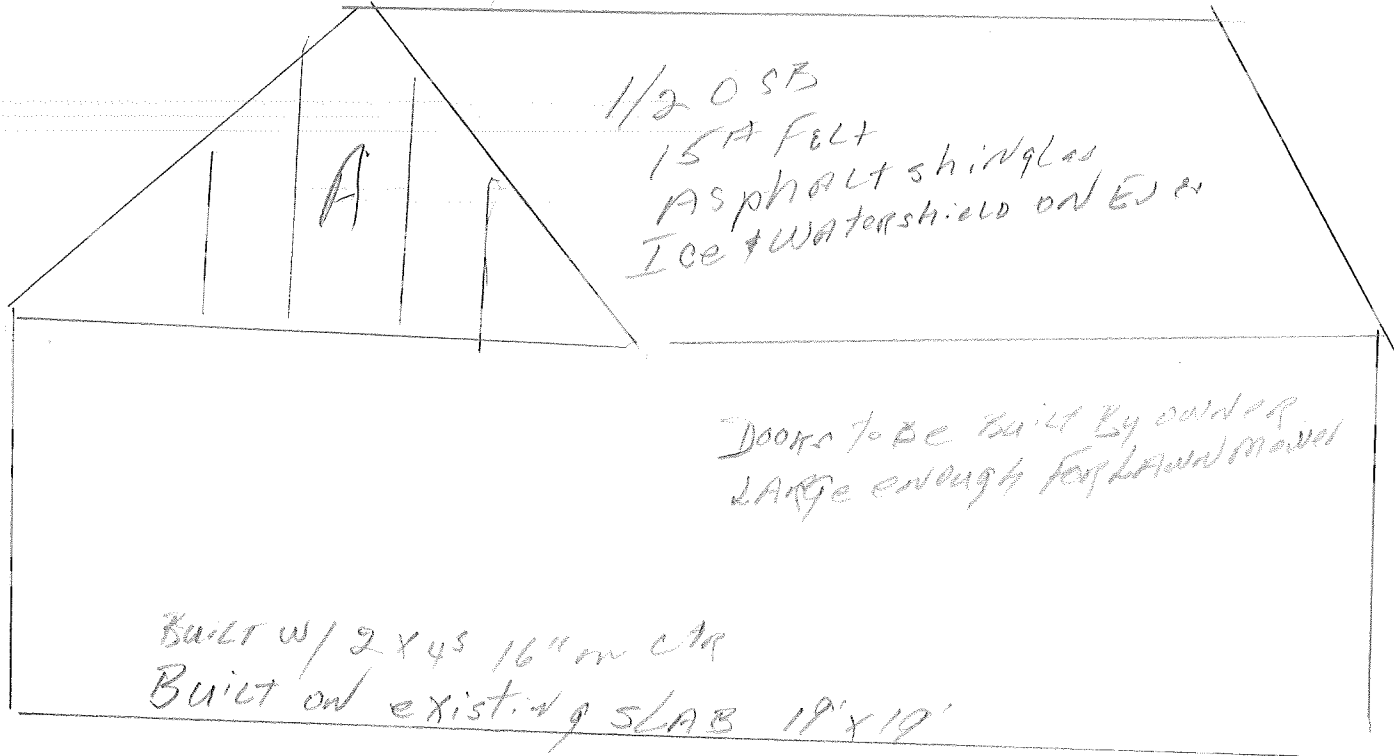 1/2 OSB
15# Felt
Asphalt shingles
Ice & Watershield on
A
Doors to Be Built By owner
LARge enough For LAwn Mower
Built w/ 2x4s 16" on ctr
Built on existing SLAB